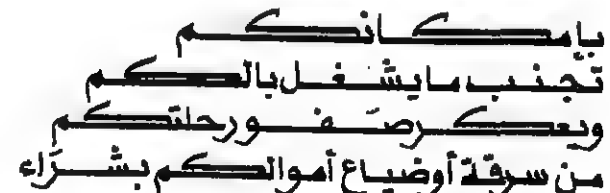 بإمكانكم
تجنب ما يشغل بالكم
ويعكر صفو رحلتكم
من سرقة أوضياع أموالكم بشراء